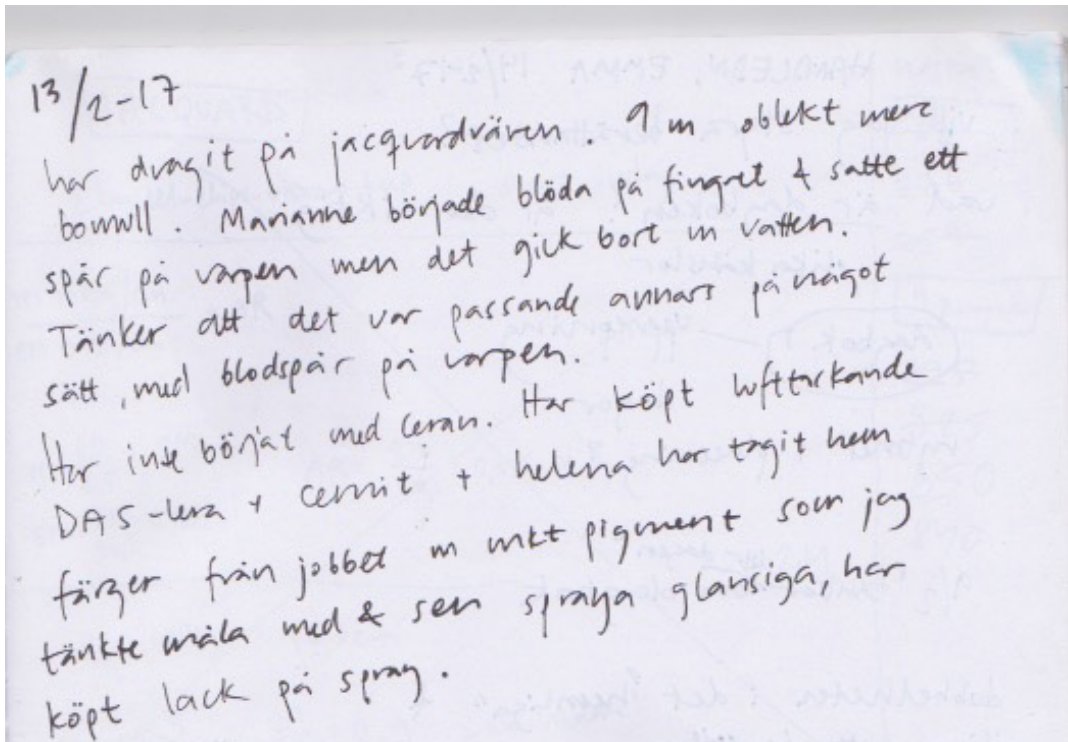 13/2-17
har dragit på jacquardväven. 9 m oblekt merc.
bomull. Marianne började blöda på fingret & satte ett
spår på varpen men det gick bort m vatten.
Tänker att det var passande annars på något
sätt, med blodspår på varpen.
Har inte börjat med leran. Har köpt lufttorkande
DAS-lera + cernit + helena har tagit hem
färger från jobbet m mkt pigment som jag
tänkte måla med & sen spraya glansiga, har
köpt lack på spray.